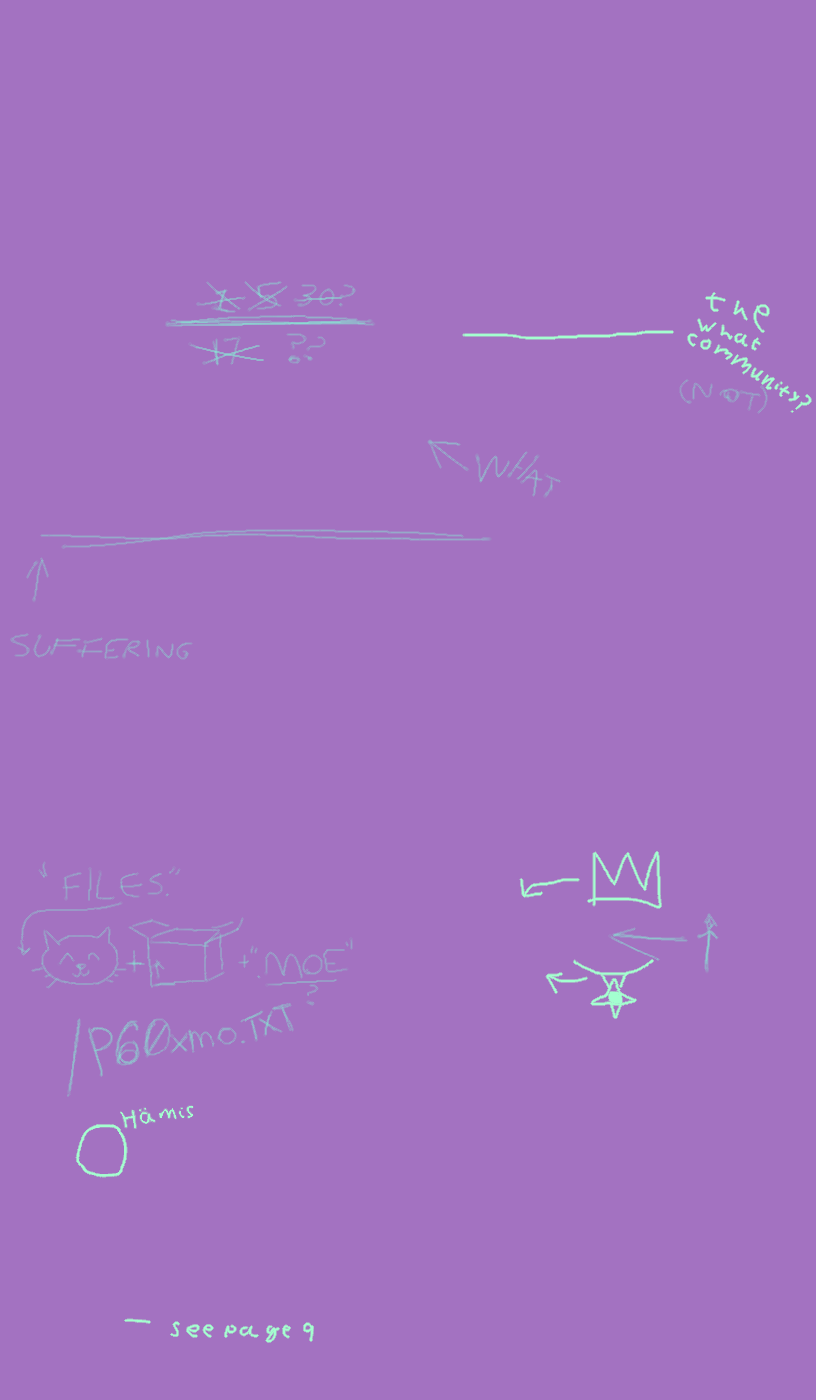 1 5 30?
17 ??
the
what
community?
(NOT)
WHAT
SUFFERING
"FILES."
+ + ".MOE"
?
/P60xmo.TXT
Hämis
— see page 9